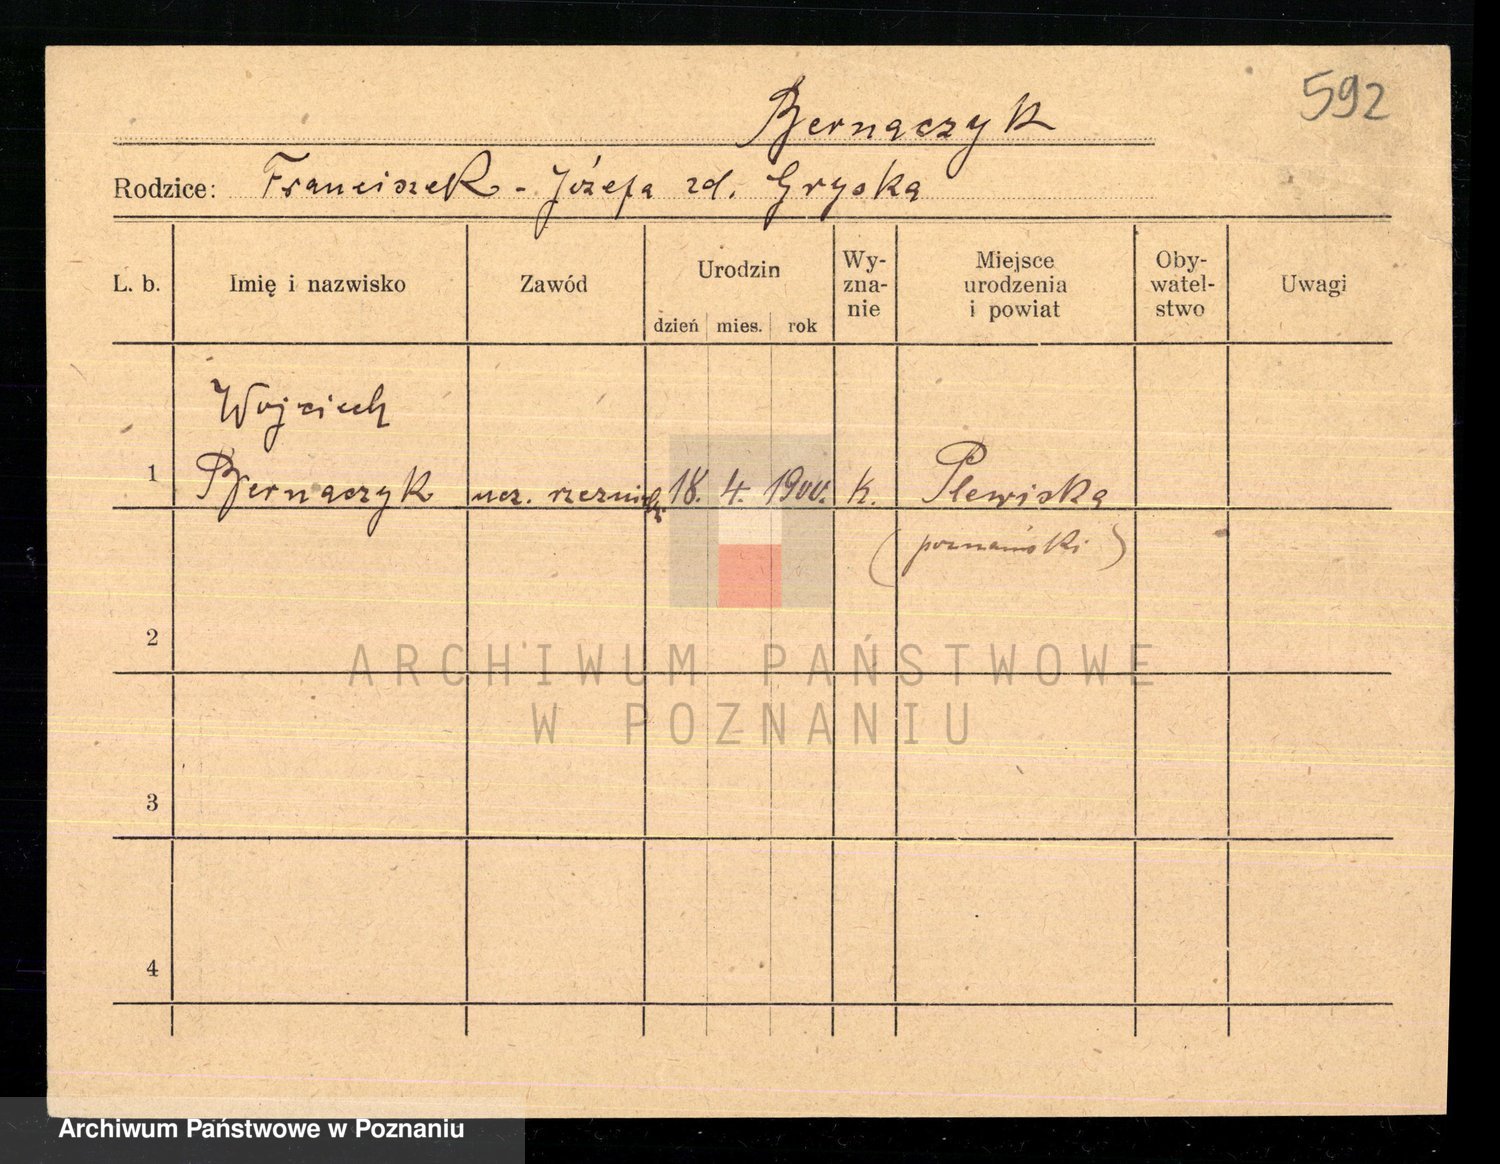 592
Bernaczyk
Rodzice: Franciszek - Józefa zd. Gryska
L. b.
Imię i nazwisko
Zawód
Urodzin
dzień mies. rok
Wy-
zna-
nie
Miejsce
urodzenia
i powiat
Oby-
watel-
stwo
Uwagi
Wojciech
1 Bernaczyk ucz. rzeźnicki 18. 4. 1900. k. Plewiska
(poznański)
2
ARCHIWUM PAŃSTWOWE
W POZNANIU
3
4
Archiwum Państwowe w Poznaniu